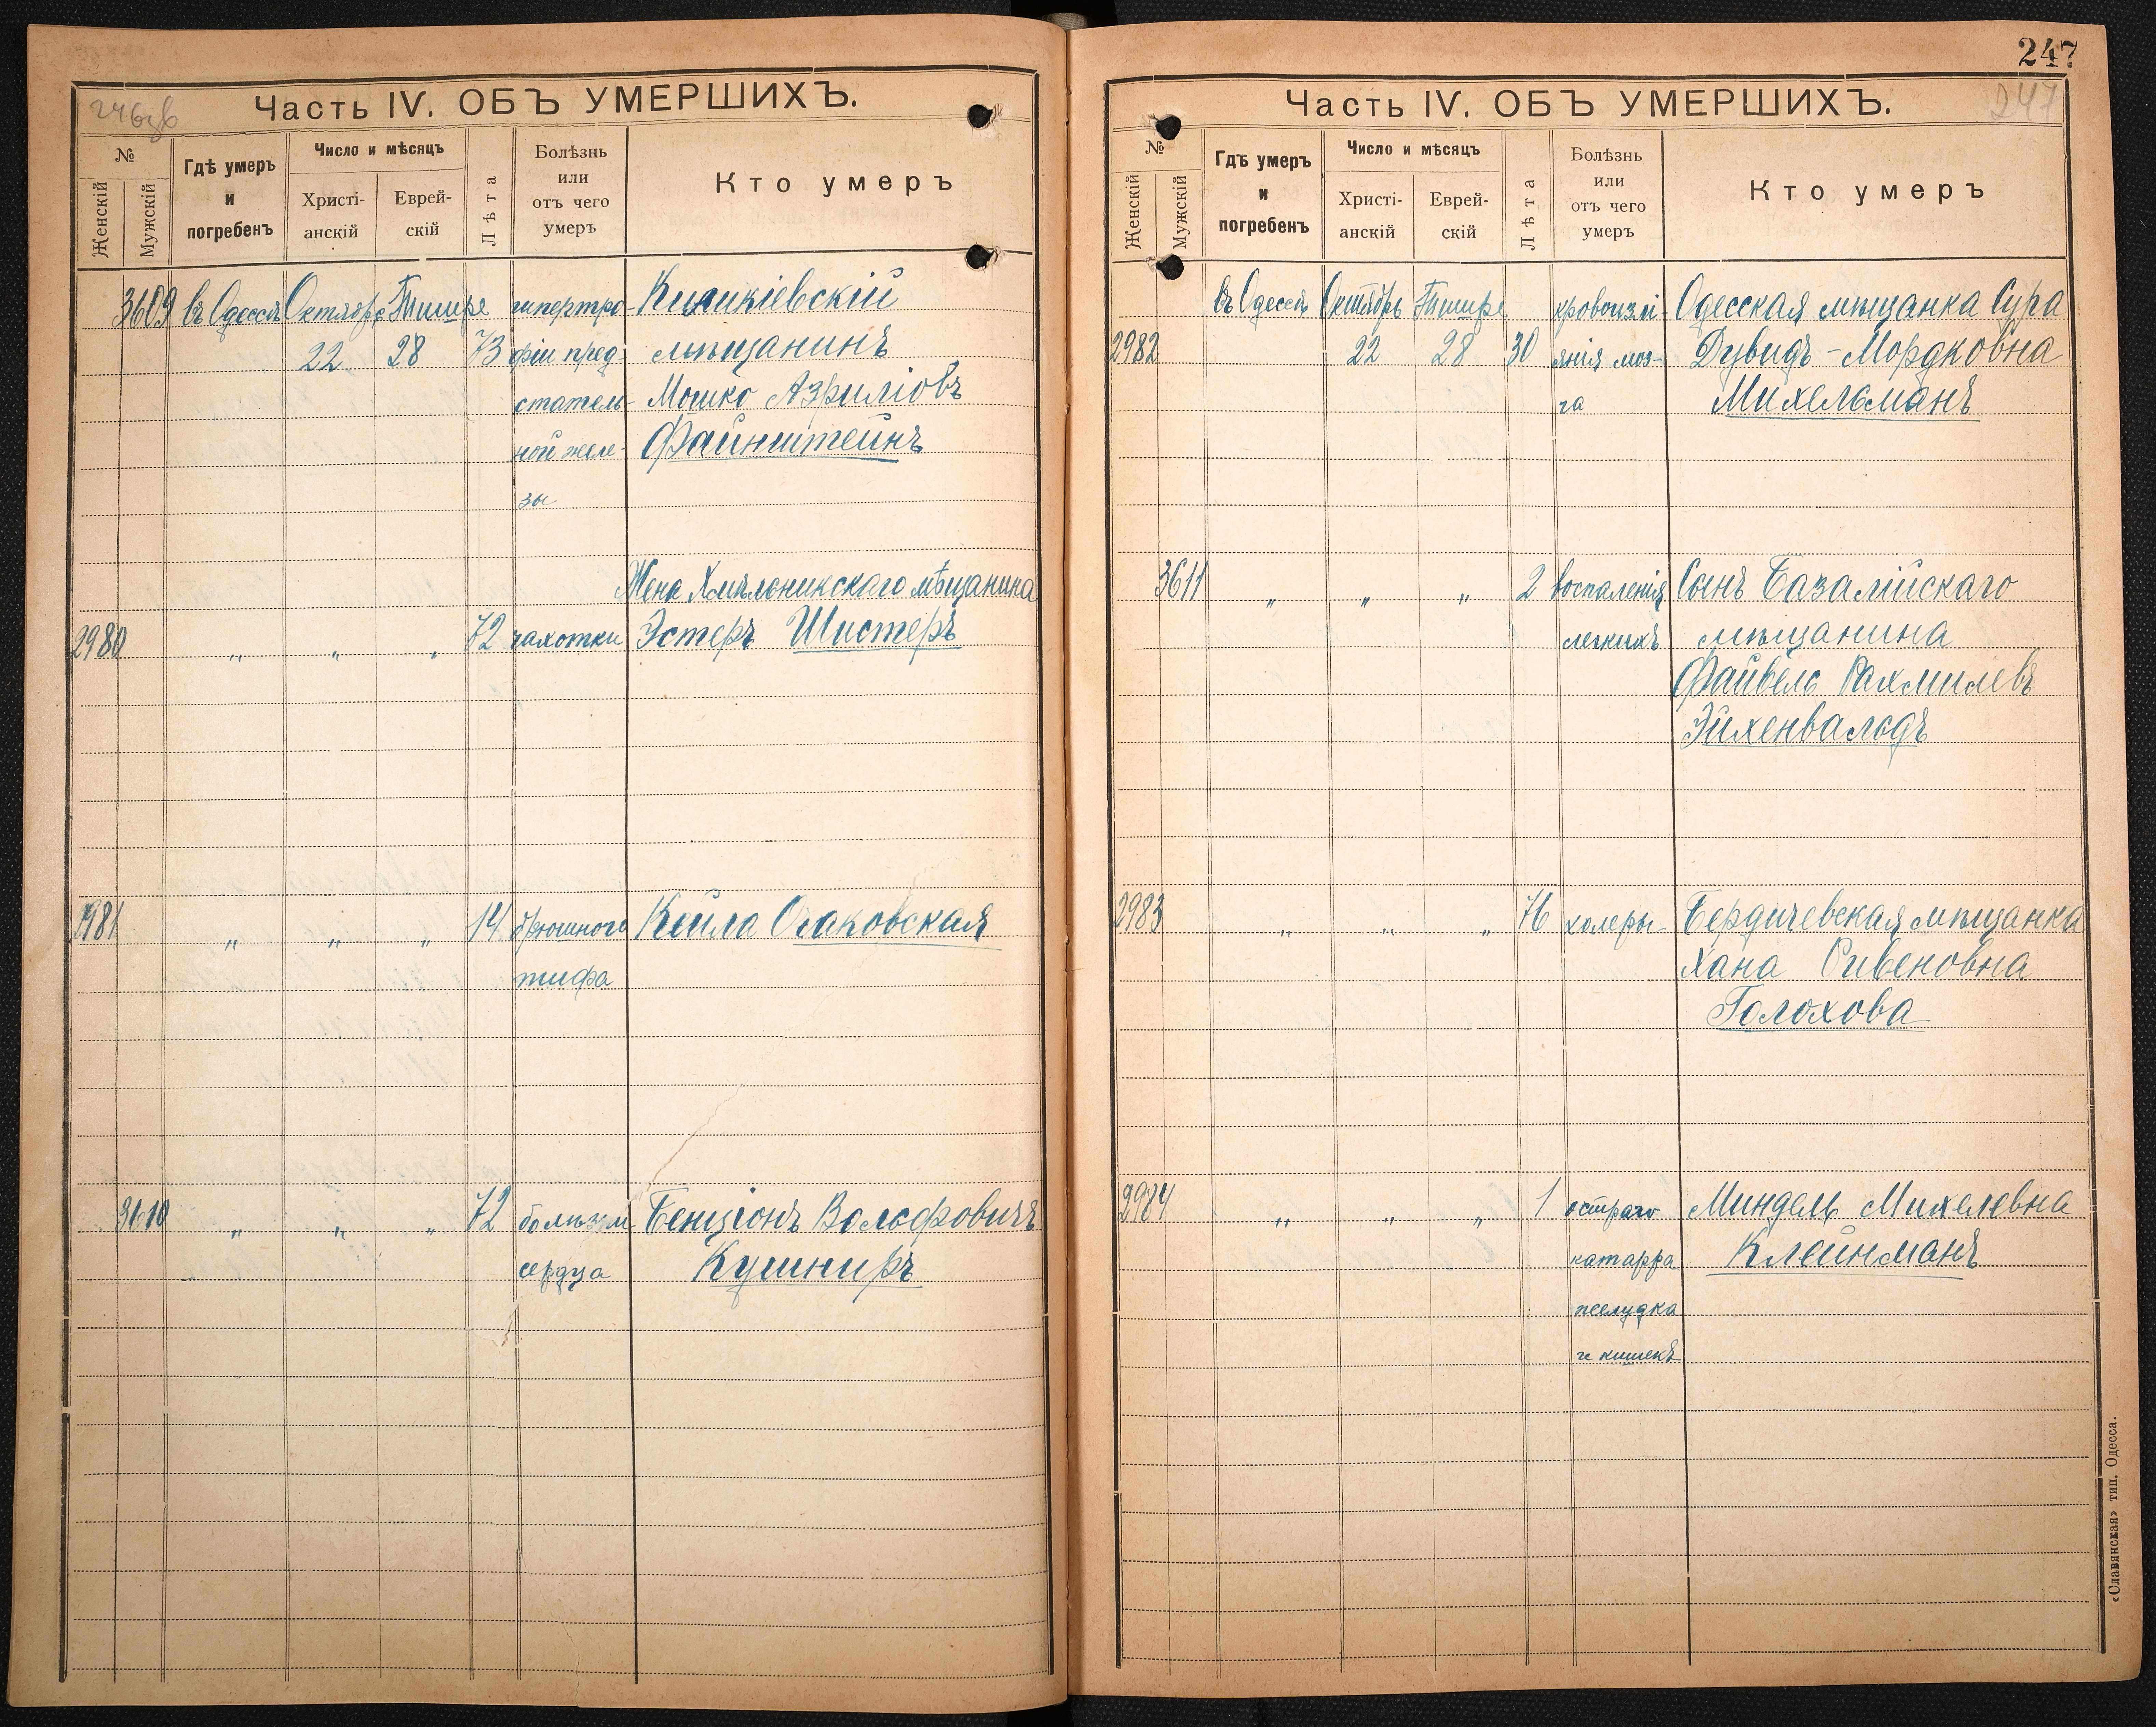 246зв
Часть IV. ОБЪ УМЕРШИХЪ.
№
Женскій
Мужскій
Гдѣ умеръ
и
погребенъ
Число и мѣсяцъ
Христі-
анскій
Еврей-
скій
Лѣта
Болѣзнь
или
отъ чего
умеръ
Кто умеръ
3609 въ Одессѣ Октябрь Тишре гипертро- 
22 28 73 фіи пред- мѣщанинъ
статель- Мошко Азриліовъ
ной желе- Файнштейнъ
зы
Жена Хмѣльникскаго мѣщанина
2980 „ „ „ 72 чахотки Эстеръ Шистеръ
2981 „ „ „ 14 брюшного Кейла Очаковская
тифа
3610 „ „ „ 72 болѣзни Бенціонъ Вольфовичъ
сердца Кушниръ
247
Часть IV. ОБЪ УМЕРШИХЪ.
247
№
Женскій
Мужскій
Гдѣ умеръ
и
погребенъ
Число и мѣсяцъ
Христі-
анскій
Еврей-
скій
Лѣта
Болѣзнь
или
отъ чего
умеръ
Кто умеръ
въ Одессѣ Октябрь Тишре кровоизлі- Одесская мѣщанка Сура
2982 22 28 30 янія моз- Дувидъ-Мордковна
га Михельманъ
3611 „ „ „ 2 воспаленія Сынъ Базалійскаго
легкихъ мѣщанина
Файвель Рахмилевъ
Эйхенвальдъ
2983 „ „ „ 76 холеры Бердичевская мѣщанка
Хана Ривеновна
Голохова
2984 „ „ „ 1 остраго Миндель Михелевна
катарра Клейнманъ
желудка
и кишекъ
«Славянская» тип. Одесса.